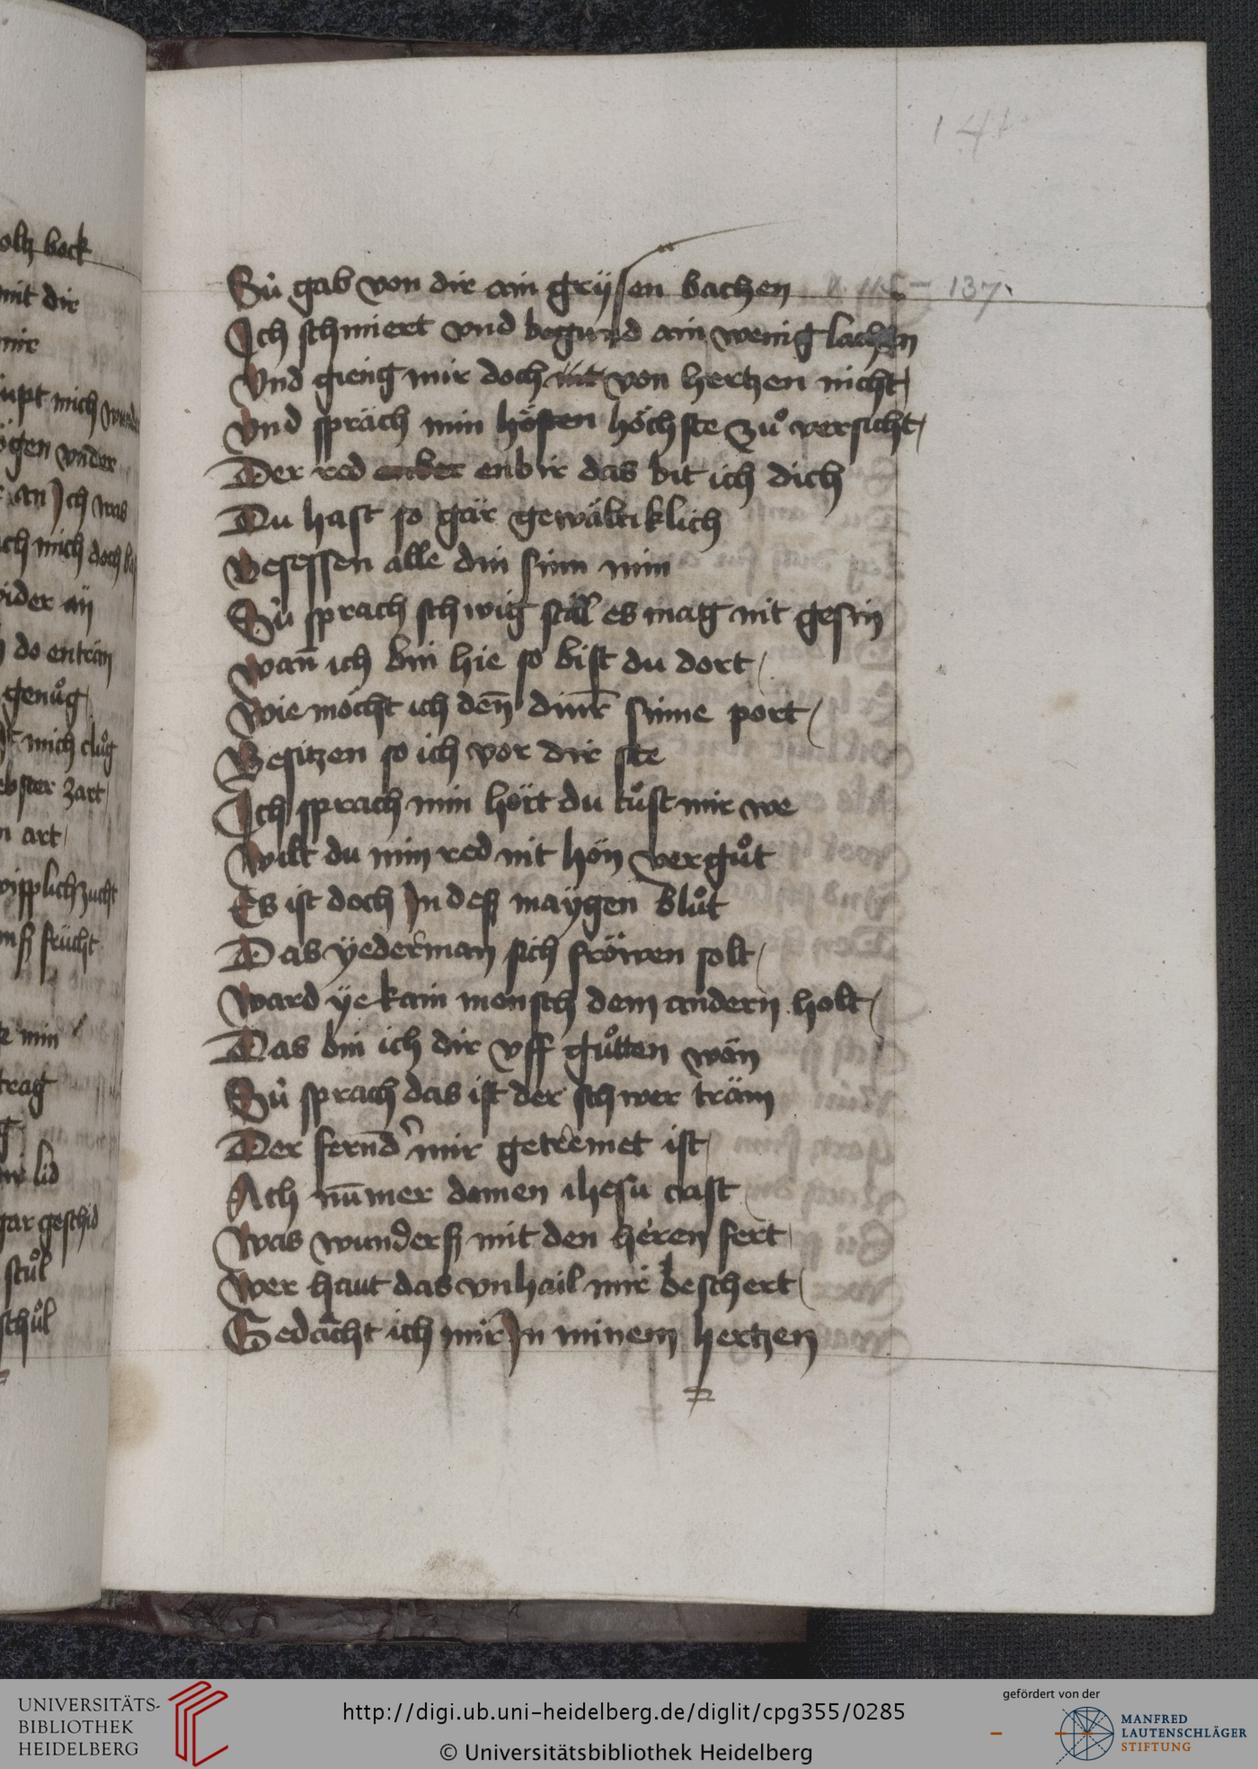 141
Sü gab von dir ain grysen bachen
8 115 – 137
Ich schmiert vnd begund ain wenig lachen
Vnd gieng mir doch nit von hertzen nicht
Vnd spräch min höften höchste zuͦ versicht
Der red ander enbir das bit ich dich
Du hast so gär gewältiklich
Besessen alle din sinn min
Sü sprach schwig stäl es mag nit gesin
wañ ich bin hie so bist du dort
Wie möcht ich deñ diner sinne port
Besitzen so ich vor dir ste
Ich sprach min hört du tuͦst mir we
Wilt du min red nit hön verguͦt
Es ist doch In deß maygen bluͦt
Das yederman sich fröwen solt
Ward ye kain mensch dem andern holt
Das bin ich dir vff guͦtten wän
Sü sprach das ist der schwer träm
Der fernd mir getremet ist
Ach nūmer domen ihesu crist
Was wunderß mit den heren fert
Wer haut das vnhail mir beschert
Gedächt ich mir In minem hertzen
oltz bock
mit dir
mir
upt mich
ögen vnder
an Ich was
ach mich doch
wider an
do enträn
genuͦg
mich cluͦg
ebster zart
art
wipplich zucht
frücht
min
trag
lid
gar geschid
stuͦl
schuͦl
UNIVERSITÄTS-
BIBLIOTHEK
HEIDELBERG
http://digi.ub.uni-heidelberg.de/diglit/cpg355/0285
© Universitätsbibliothek Heidelberg
gefördert von der
MANFRED
LAUTENSCHLÄGER
STIFTUNG